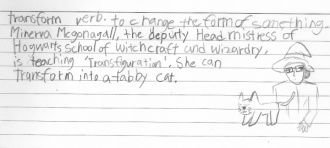 transform verb. to change the form of something.
Minerva Mcgonagall, the deputy Headmistress of
Hogwarts school of witchcraft and wizardry,
is teaching 'Transfiguration'. She can
Transform into a tabby cat.